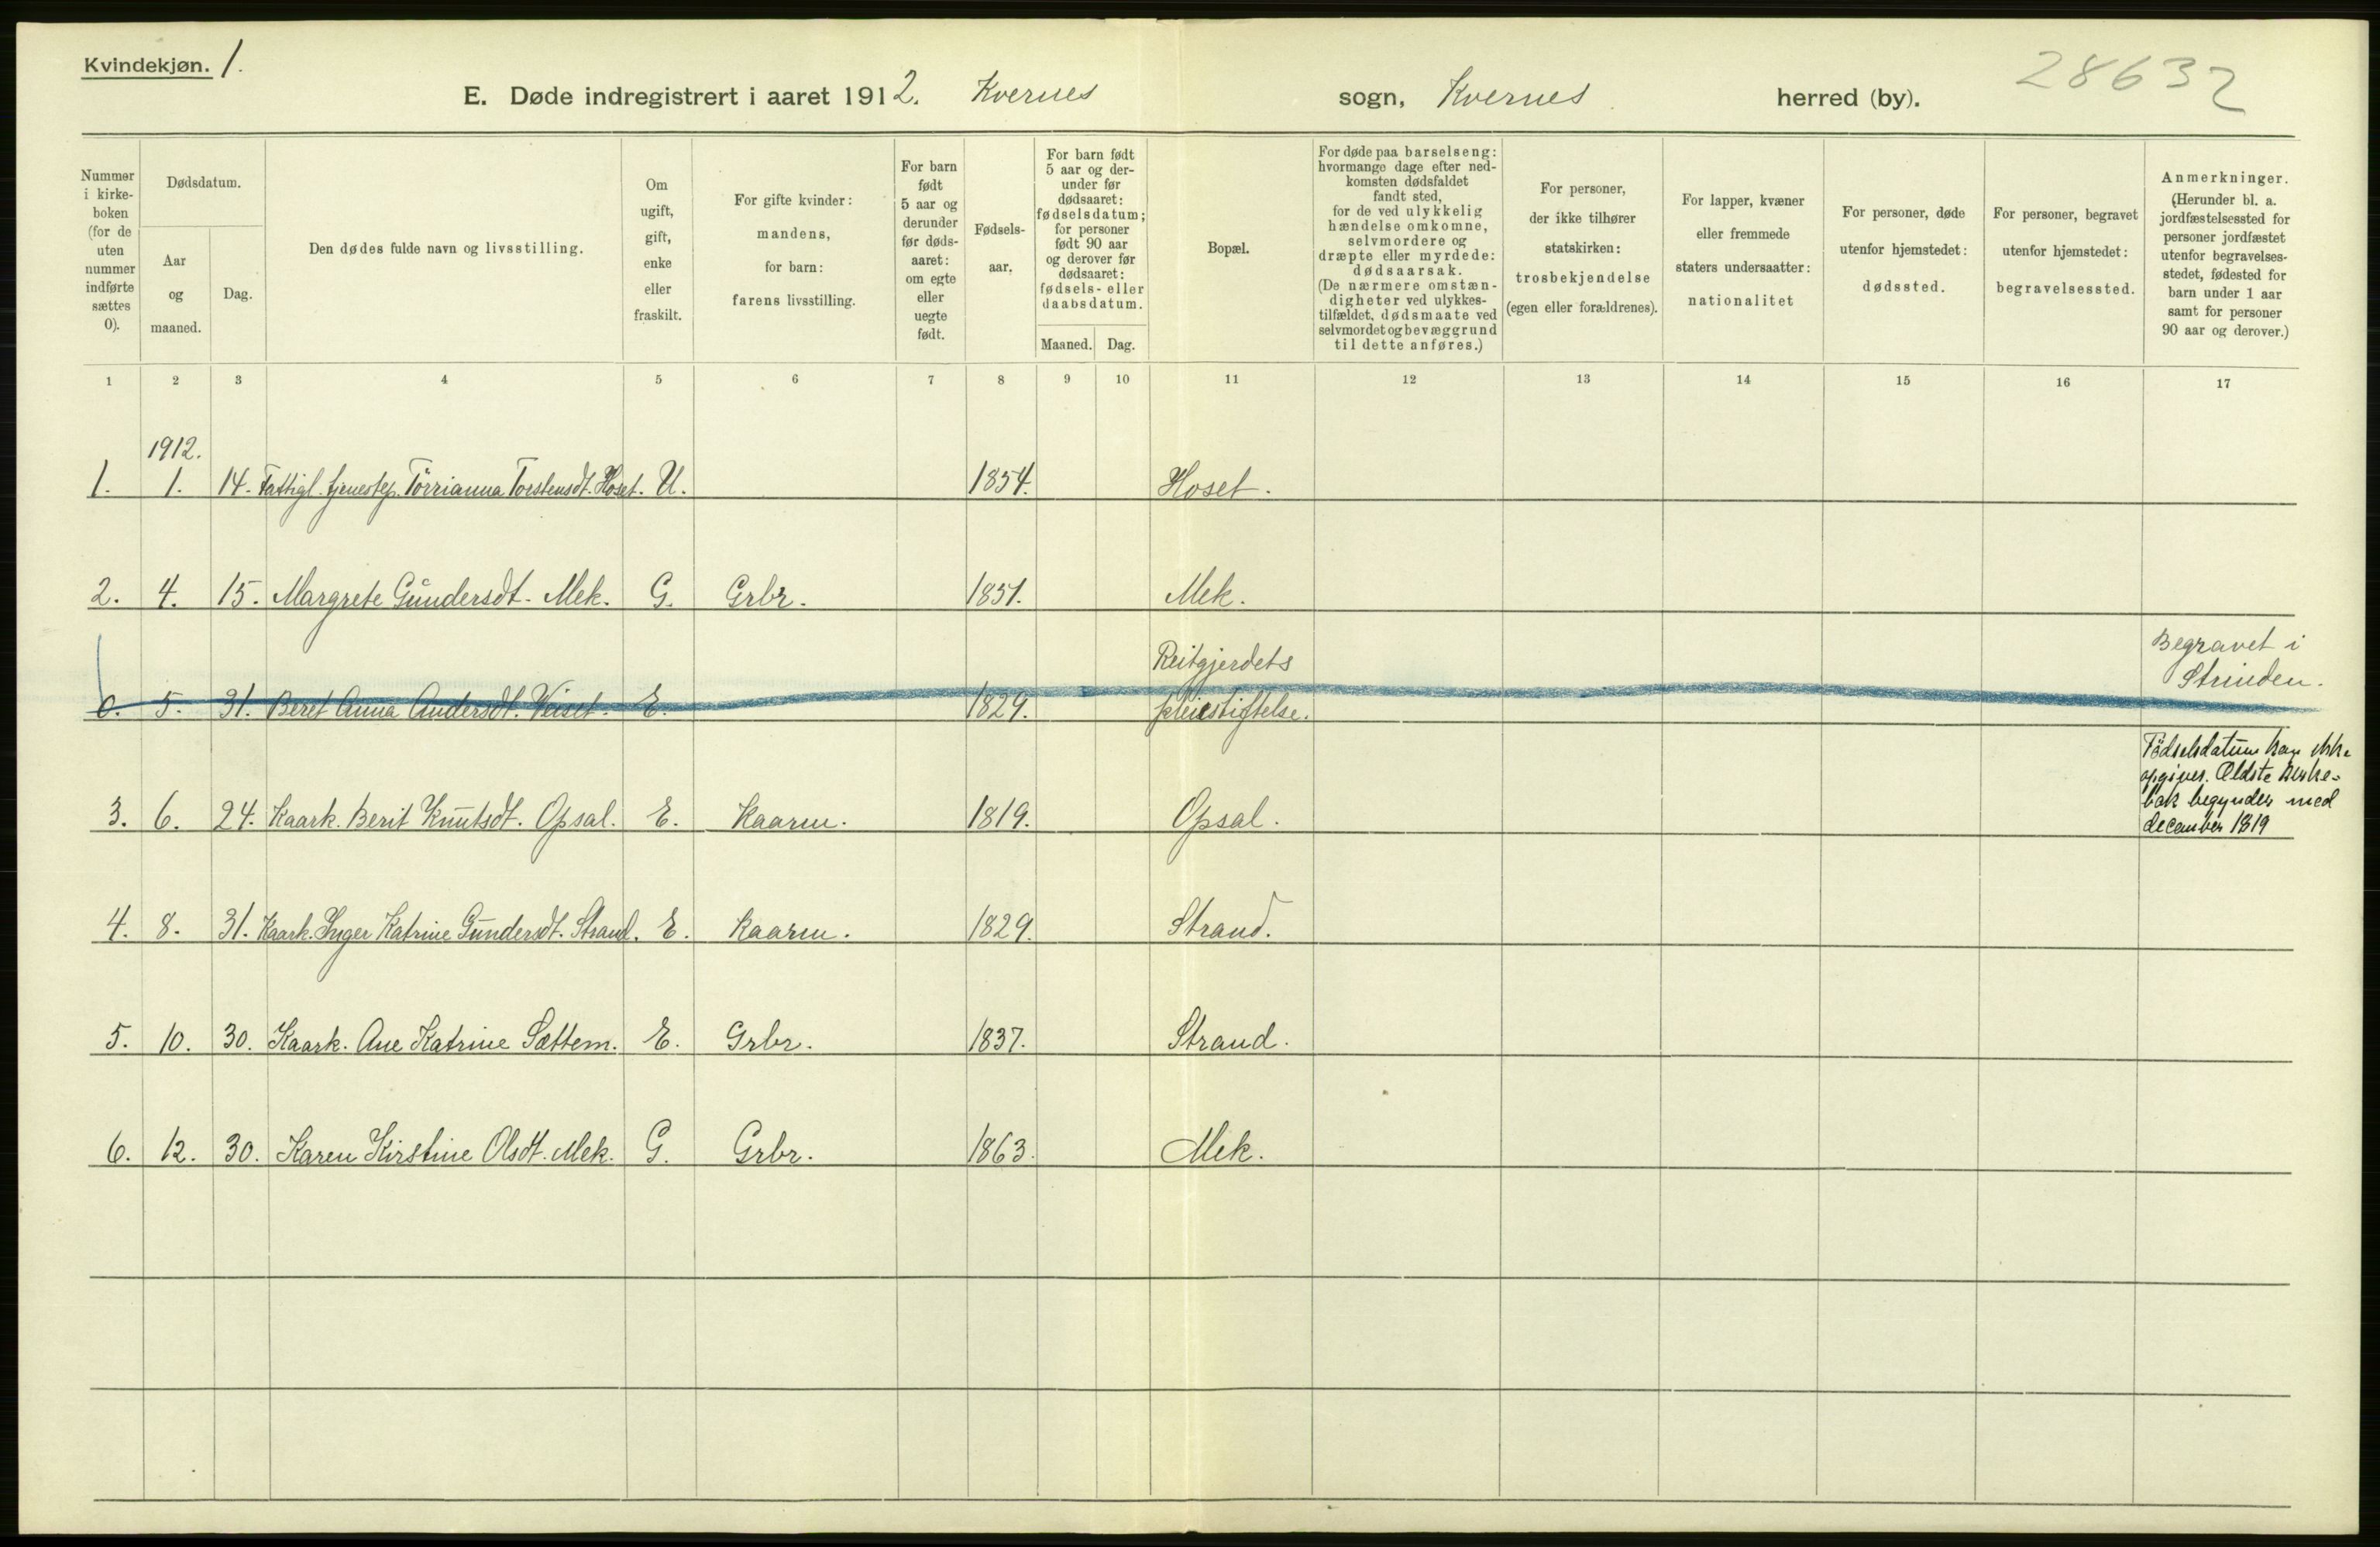 Kvindekjøn. 1.
28632
E. Døde indregistrert i aaret 1912. Kvernes sogn, Kvernes herred (by).
Nummer
i kirke-
boken
(for de
uten
nummer
indførte
sættes
0).
Dødsdatum.
Aar
og
maaned.
Dag.
Den dødes fulde navn og livsstilling.
Om
ugift,
gift,
enke
eller
fraskilt.
For gifte kvinder:
mandens,
for barn:
farens livsstilling.
For barn
født
5 aar og
derunder
før døds-
aaret:
om egte
eller
uegte
født.
Fødsels-
aar.
For barn født
5 aar og der-
under før
dødsaaret:
fødselsdatum;
for personer
født 90 aar
og derover før
dødsaaret:
fødsels- eller
daabsdatum.
Maaned. Dag.
Bopæl.
For døde paa barselseng:
hvormange dage efter ned-
komsten dødsfaldet
fandt sted,
for de ved ulykkelig
hændelse omkomne,
selvmordere og
dræpte eller myrdede:
dødsaarsak.
(De nærmere omstæn-
digheter ved ulykkes-
tilfældet, dødsmaate ved
selvmordet og bevæggrund
til dette anføres.)
For personer,
der ikke tilhører
statskirken:
trosbekjendelse
(egen eller forældrenes).
For lapper, kvæner
eller fremmede
staters undersaatter:
nationalitet
For personer, døde
utenfor hjemstedet:
dødssted.
For personer, begravet
utenfor hjemstedet:
begravelsessted.
Anmerkninger.
(Herunder bl. a.
jordfæstelsessted for
personer jordfæstet
utenfor begravelses-
stedet, fødested for
barn under 1 aar
samt for personer
90 aar og derover.)
1 2 3 4 5 6 7 8 9 10 11 12 13 14 15 16 17
1912.
1. 1. 14. Fattigl. tjenestep. Törrianna Torstensdt. Hoset. U. 1854. Hoset.
2. 4. 15. Margrete Gundersdt. Mek. G. Grbr. 1851. Mek.
Reitgjerdets Begravet i
0. 5. 31. Beret Anna Andersdt. Veiset. E. 1829. pleiestiftelse. Strinden.
Födselsdatum kan ikke
opgives. Ældste kirke-
bok begynder med
3. 6. 24. Kaark. Berit Knutsdt. Opsal. E. Kaarm. 1819. Opsal. december 1819
4. 8. 31. Kaark. Inger Katrine Gundersdt. Strand. E. Kaarm. 1829. Strand.
5. 10. 30. Kaark. Ane Katrine Sættem. E. Grbr. 1837. Strand.
6. 12. 30. Karen Kirstine Olsdt. Mek. G. Grbr. 1863. Mek.